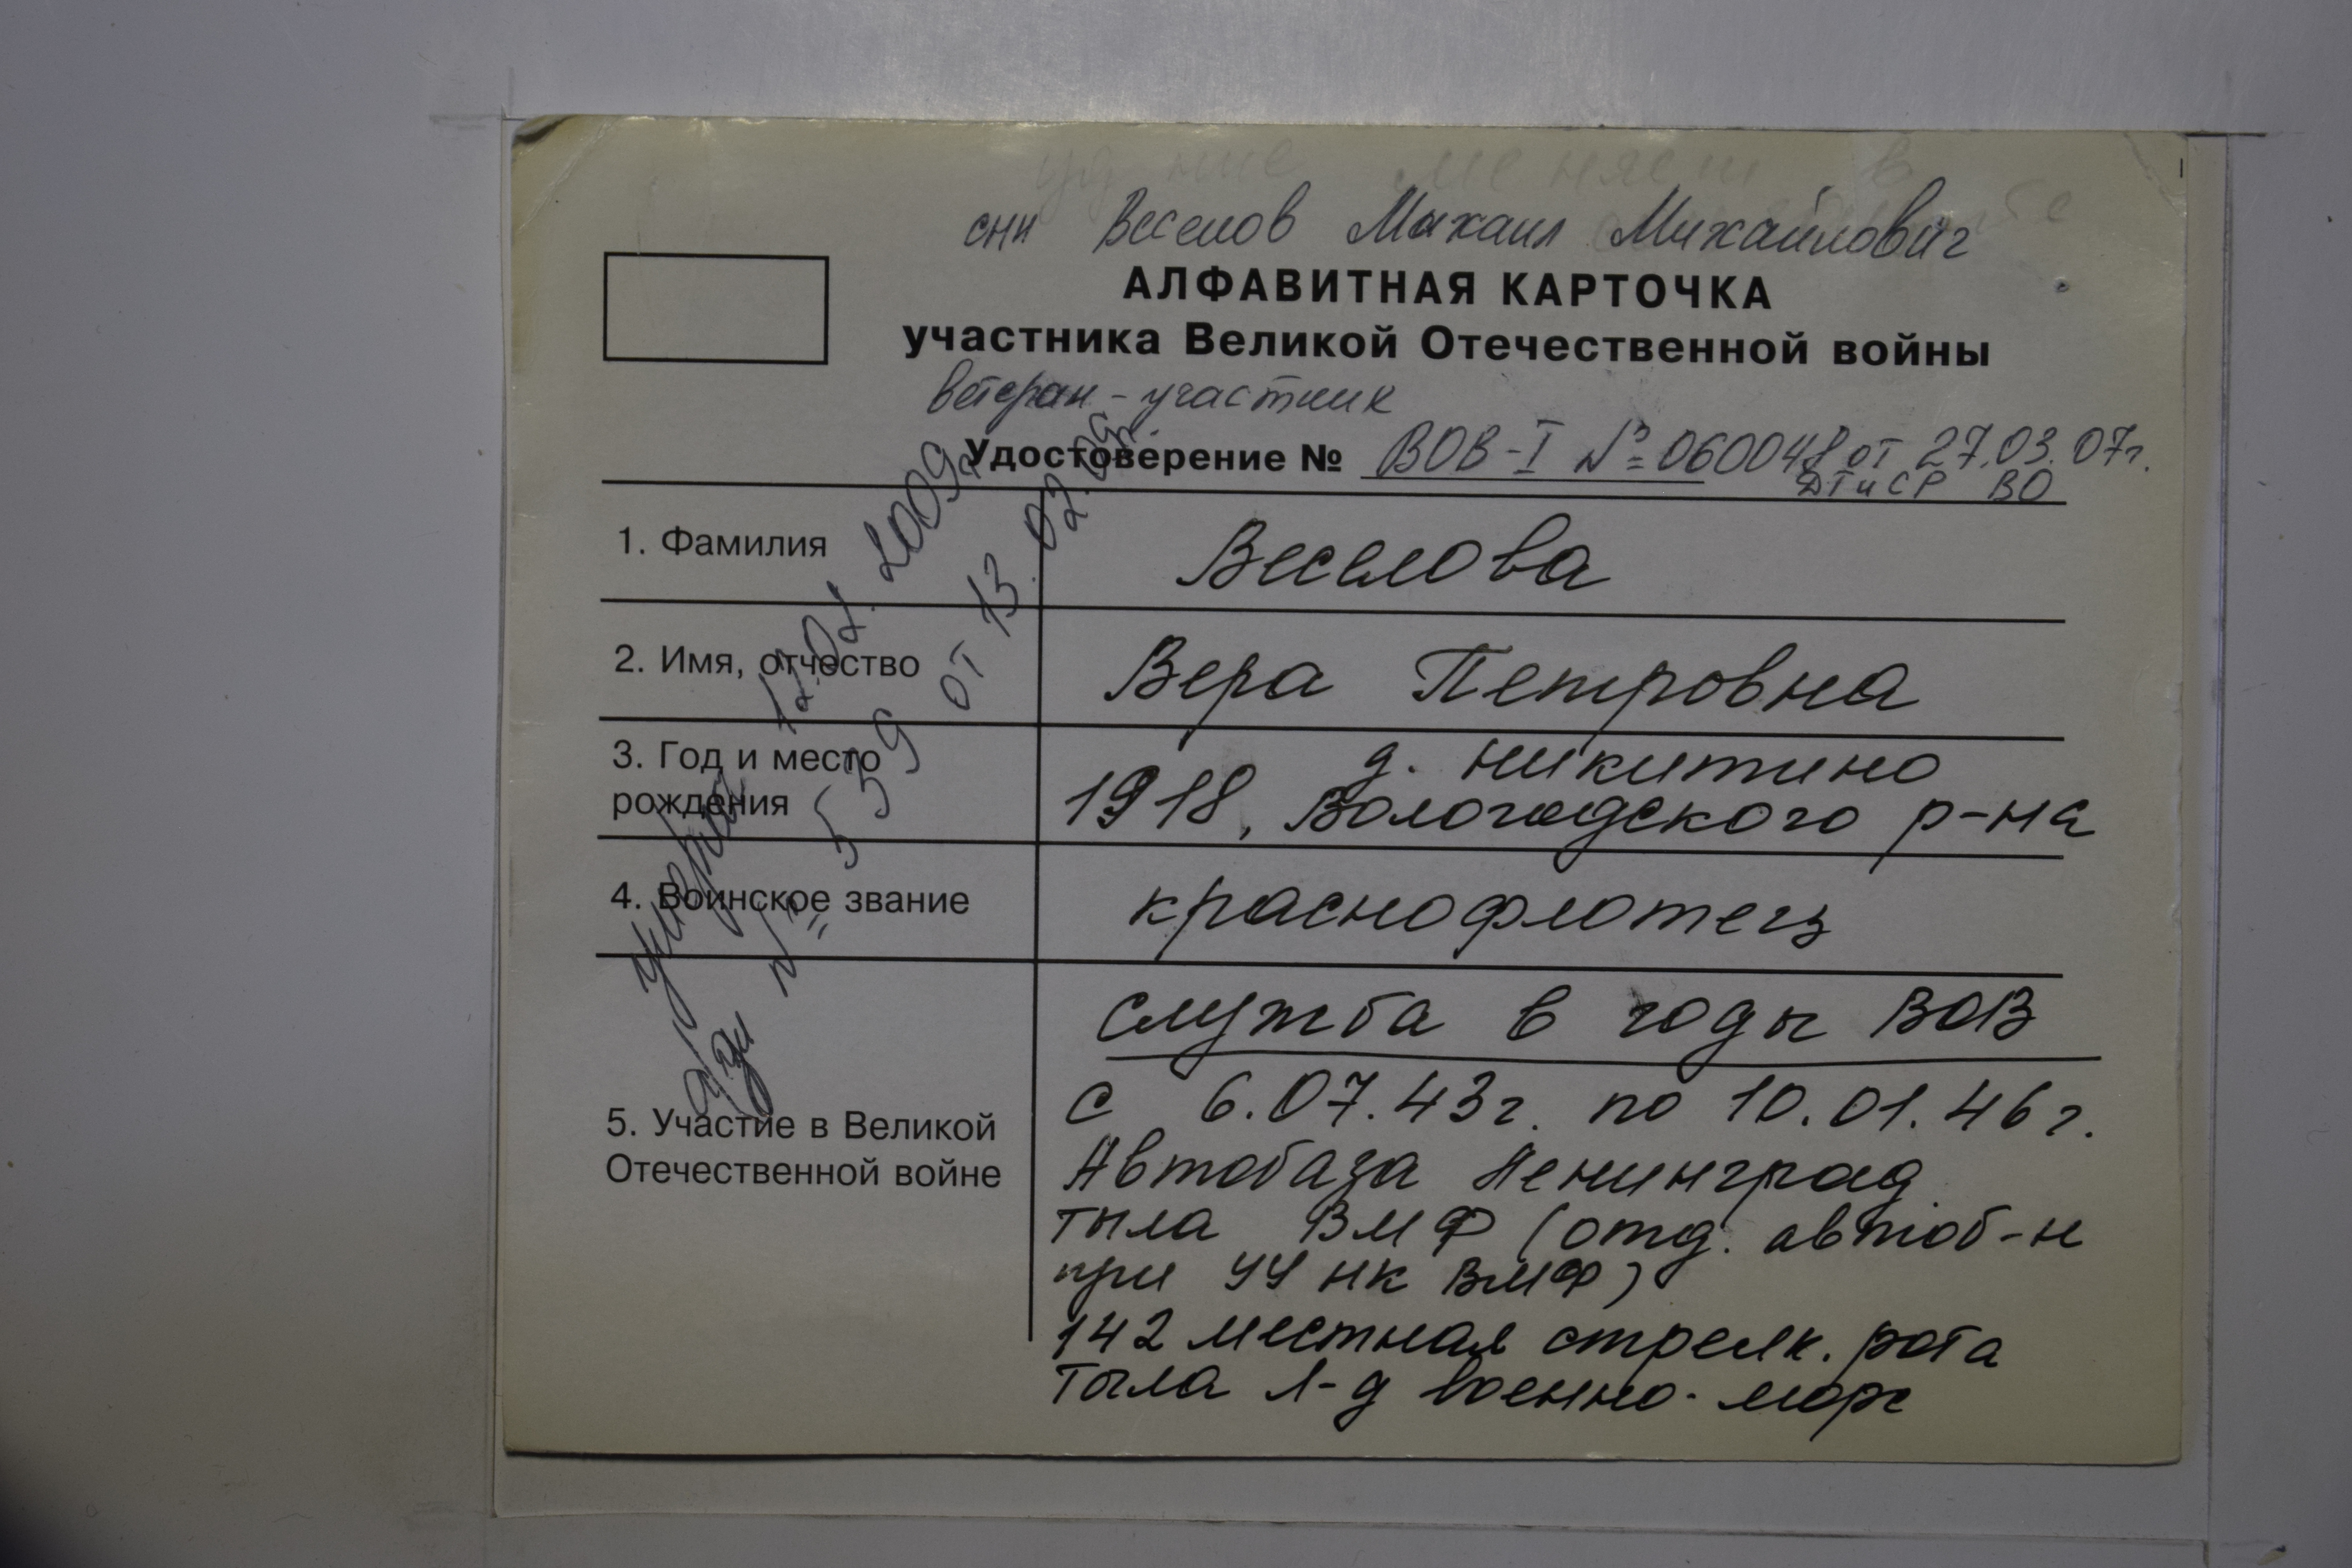 уд ние меняет в
сни Веселов Михаил Михайлович
АЛФАВИТНАЯ КАРТОЧКА
участника Великой Отечественной войны
ветеран - участник
Удостоверение № ВОВ-I № 060048 от 27.03.07г.
ДТиСР ВО
1. Фамилия
Веселова
2. Имя, отчество
Вера Петровна
3. Год и место
рождения
д. Никитино
1918, Вологодского р-на
4. Воинское звание
краснофлотец
5. Участие в Великой
Отечественной войне
служба в годы ВОВ
с 6.07.43г. по 10.01.46г.
Автобаза Ленинград.
тыла ВМФ (отд. автоб-н
при УУ НК ВМФ)
142 местная стрелк. рота
тыла Л-д военно-морс
умерла 12.02.2009г
а/зп № 559 от 13.02.09г.